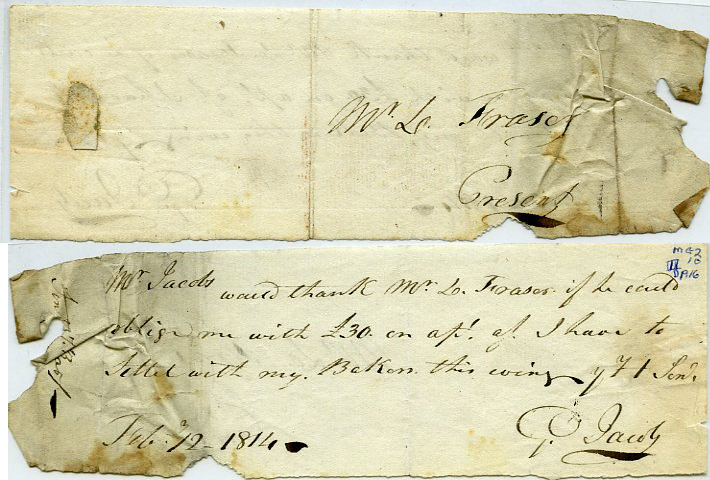 Mr. L. Fraser
Present
Mr Jacobs would thank Mr. L. Fraser if he could
oblige me with £30. on apt. as I have to
Settel with my Baker this evning
Feb. 12 1814
G. Jacobs